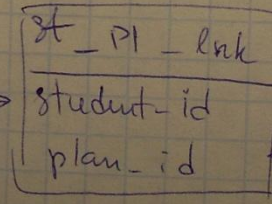 st_Pl_lnk
student_id
plan_id